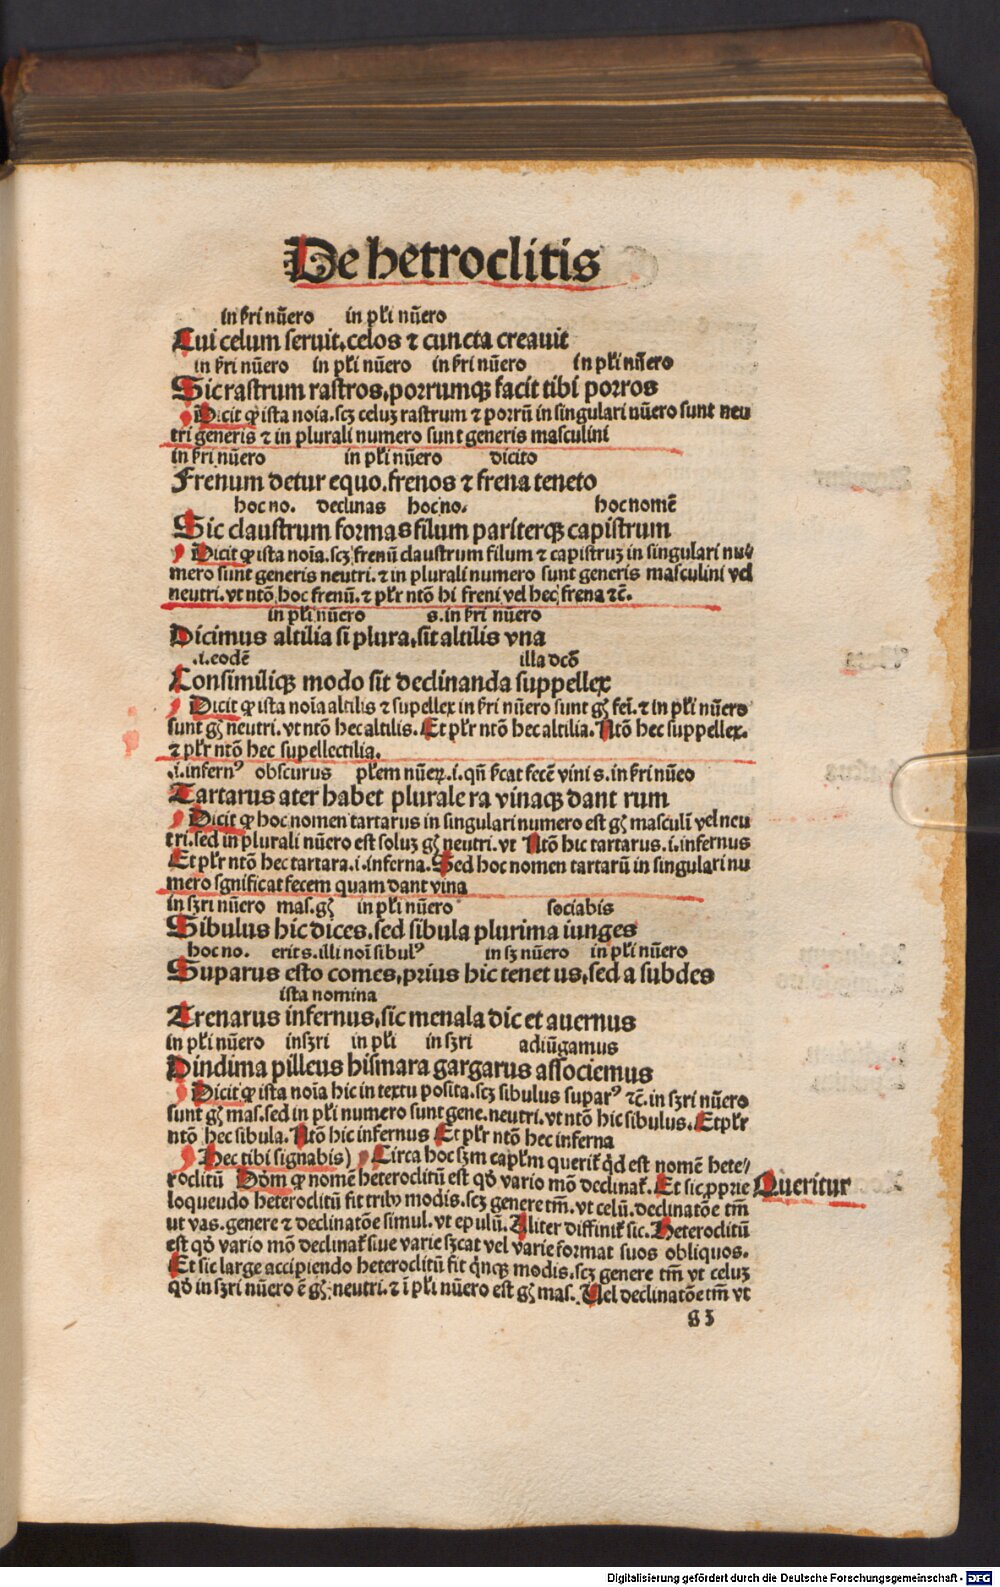 De hetroclitis
in ẜri nūero in pli nūero
Cui celum seruit.celos ⁊ cuncta creauit
in ẜri nūero in pli nūero in ẜri nūero in pli nūero
Sic rastrum rastros.porrumqꝫ facit tibi porros
Dicit ꝙ ista noīa.scꝫ celuꝫ rastrum ⁊ porrū in singulari nūero sunt neu
tri generis ⁊ in plurali numero sunt generis masculini
in ẜri nūero in pli nūero dicito
Frenum detur equo.frenos ⁊ frena teneto
hoc no. declinas hoc no. hoc nomē
Sic claustrum formas filum pariterqꝫ capistrum
Dicit ꝙ ista noīa.scꝫ frenū claustrum filum ⁊ capistruꝫ in singulari nu⸗
mero sunt generis neutri.⁊ in plurali numero sunt generis masculini vel
neutri.vt ntō hoc frenū.⁊ plr ntō hi freni vel hec frena ⁊c̄.
in pli nūero s.in ẜri nūero
Dicimus altilia si plura.sit altilis vna
.i.eodē illa dcō
Consimiliqꝫ modo sit declinanda suppellex
Dicit ꝙ ista noīa altilis ⁊ supellex in ẜri nūero sunt gꝫ fei.⁊ in pli nūero
sunt gꝫ neutri.vt ntō hec altilis.Et plr ntō hec altilia.Ntō hec suppellex.
⁊ plr ntō hec supellectilia.
.i.infernꝰ obscurus plem nūeꝝ.i.qn̄ ẜcat fecē vini s.in ẜri nūeo
Tartarus ater habet plurale ra vinaqꝫ dant rum
Dicit ꝙ hoc nomen tartarus in singulari numero est gꝫ masculi vel neu
tri.sed in plurali nūero est soluꝫ gꝫ neutri.vt Ntō hic tartarus.i.infernus
Et plr ntō hec tartara.i.inferna.Sed hoc nomen tartarū in singulari nu
mero sgnificat fecem quam dant vina
in sꝫri nūero mas.gꝫ in pli nūero sociabis
Sibulus hic dices.sed sibula plurima iunges
hoc no. erit s.illi noī sibulꝰ in sꝫ nūero in pli nūero
Suparus esto comes.prius hic tenet us.sed a subdes
ista nomina
Trenarus infernus.sic menala dic et auernus
in pli nūero in sꝫri in pli in sꝫri adiūgamus
Dindima pilleus hismara gargarus associemus
Dicit ꝙ ista noīa hic in textu posita.scꝫ sibulus suparꝰ ⁊c̄.in sꝫri nūero
sunt gꝫ mas.sed in pli numero sunt gene.neutri.vt ntō hic sibulus.Et plr
ntō hec sibula.Ntō hic infernus Et plr ntō hec inferna
Hec tibi signabis) Circa hoc sꝫm caplm querit̄ qd est nomē hete⸗
roclitū Dōm ꝙ nomē heteroclitū est qd vario mō declinat̄.Et sic ꝓprie
Queritur
loquendo heteroclitū fit tribꝰ modis.scꝫ genere tm̄.vt celū.declinatōe tm̄
ut vas.genere ⁊ declinatōe simul.vt epulū.Aliter diffinit̄ sic.Heteroclitū
est qd vario mō declinat̄ siue varie sꝫcat vel varie format suos obliquos.
Et sic large accipiendo heteroclitū fit qnqꝫ modis.scꝫ genere tm̄ vt celuꝫ
qd in sꝫri nūero ē gꝫ neutri.⁊ ī pli nūero est gꝫ mas.Vel declinatōe tm̄ vt
Digitalisierung gefördert durch die Deutsche Forschungsgemeinschaft - DFG